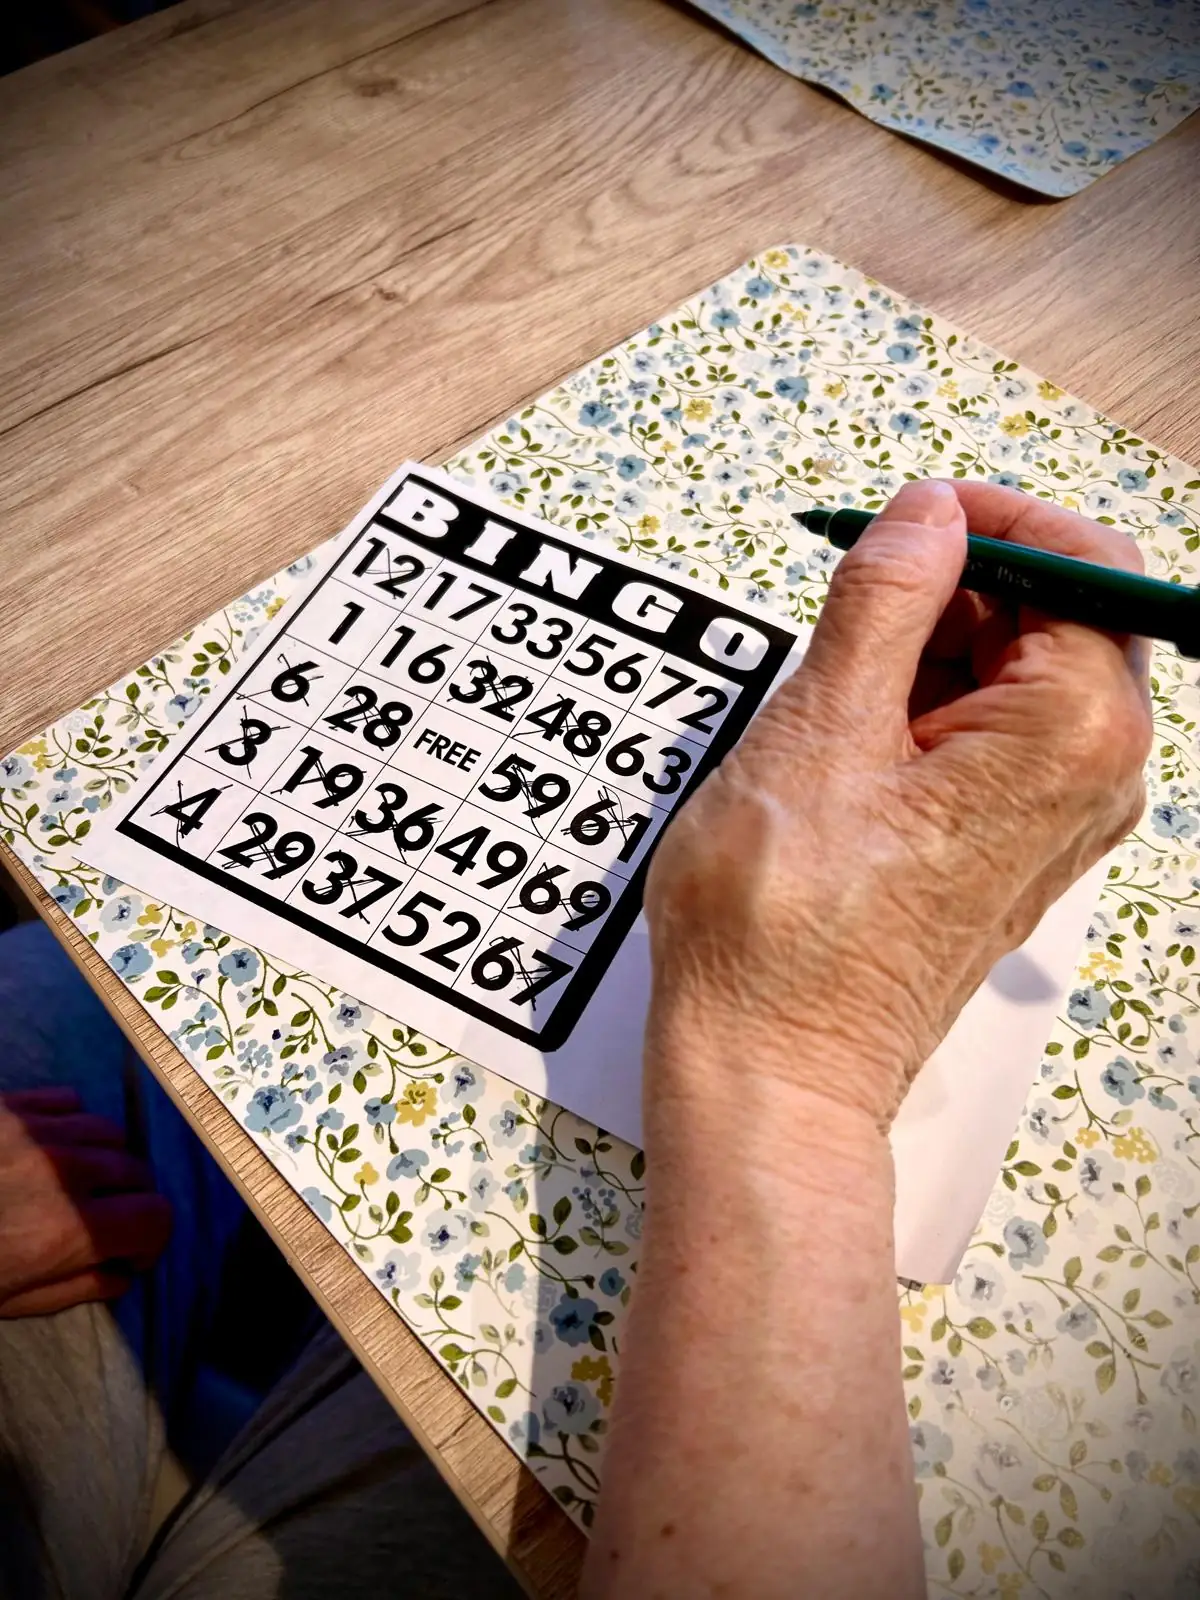 BINGO
12 17 33 56 72
1 16 32 48 63
6 28 FREE 59 61
3 19 36 49 69
4 29 37 52 67